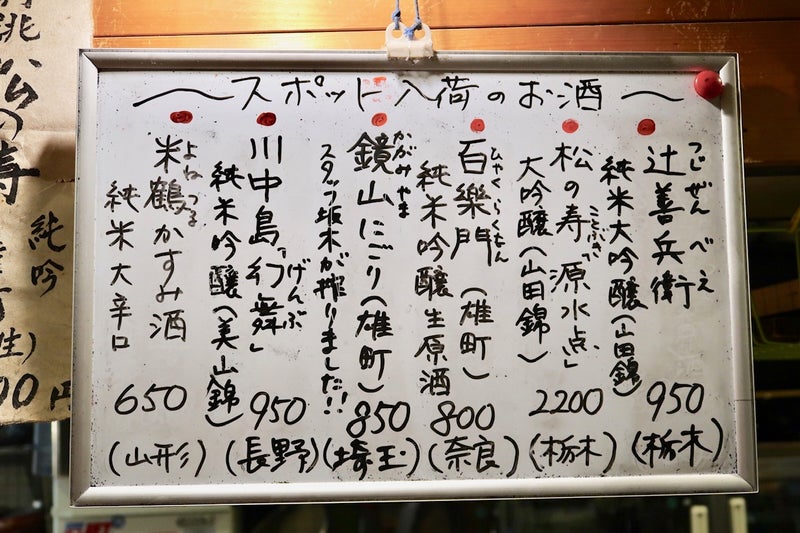 ～スポット入荷のお酒～
つじぜんべえ
辻善兵衛
純米大吟醸(山田錦)
950
(栃木)
ことぶき
松の寿「源水点」
大吟醸(山田錦)
2200
(栃木)
ひゃくらくもん
百樂門(雄町)
純米吟醸生原酒
800
(奈良)
かがみやま
鏡山にごり(雄町)
スタッフ坂木が搾りました!!
850
(埼玉)
げんぶ
川中島「幻舞」
純米吟醸(美山錦)
950
(長野)
よねつる
米鶴かすみ酒
純米大辛口
650
(山形)
松の寿
純吟
生)
00円